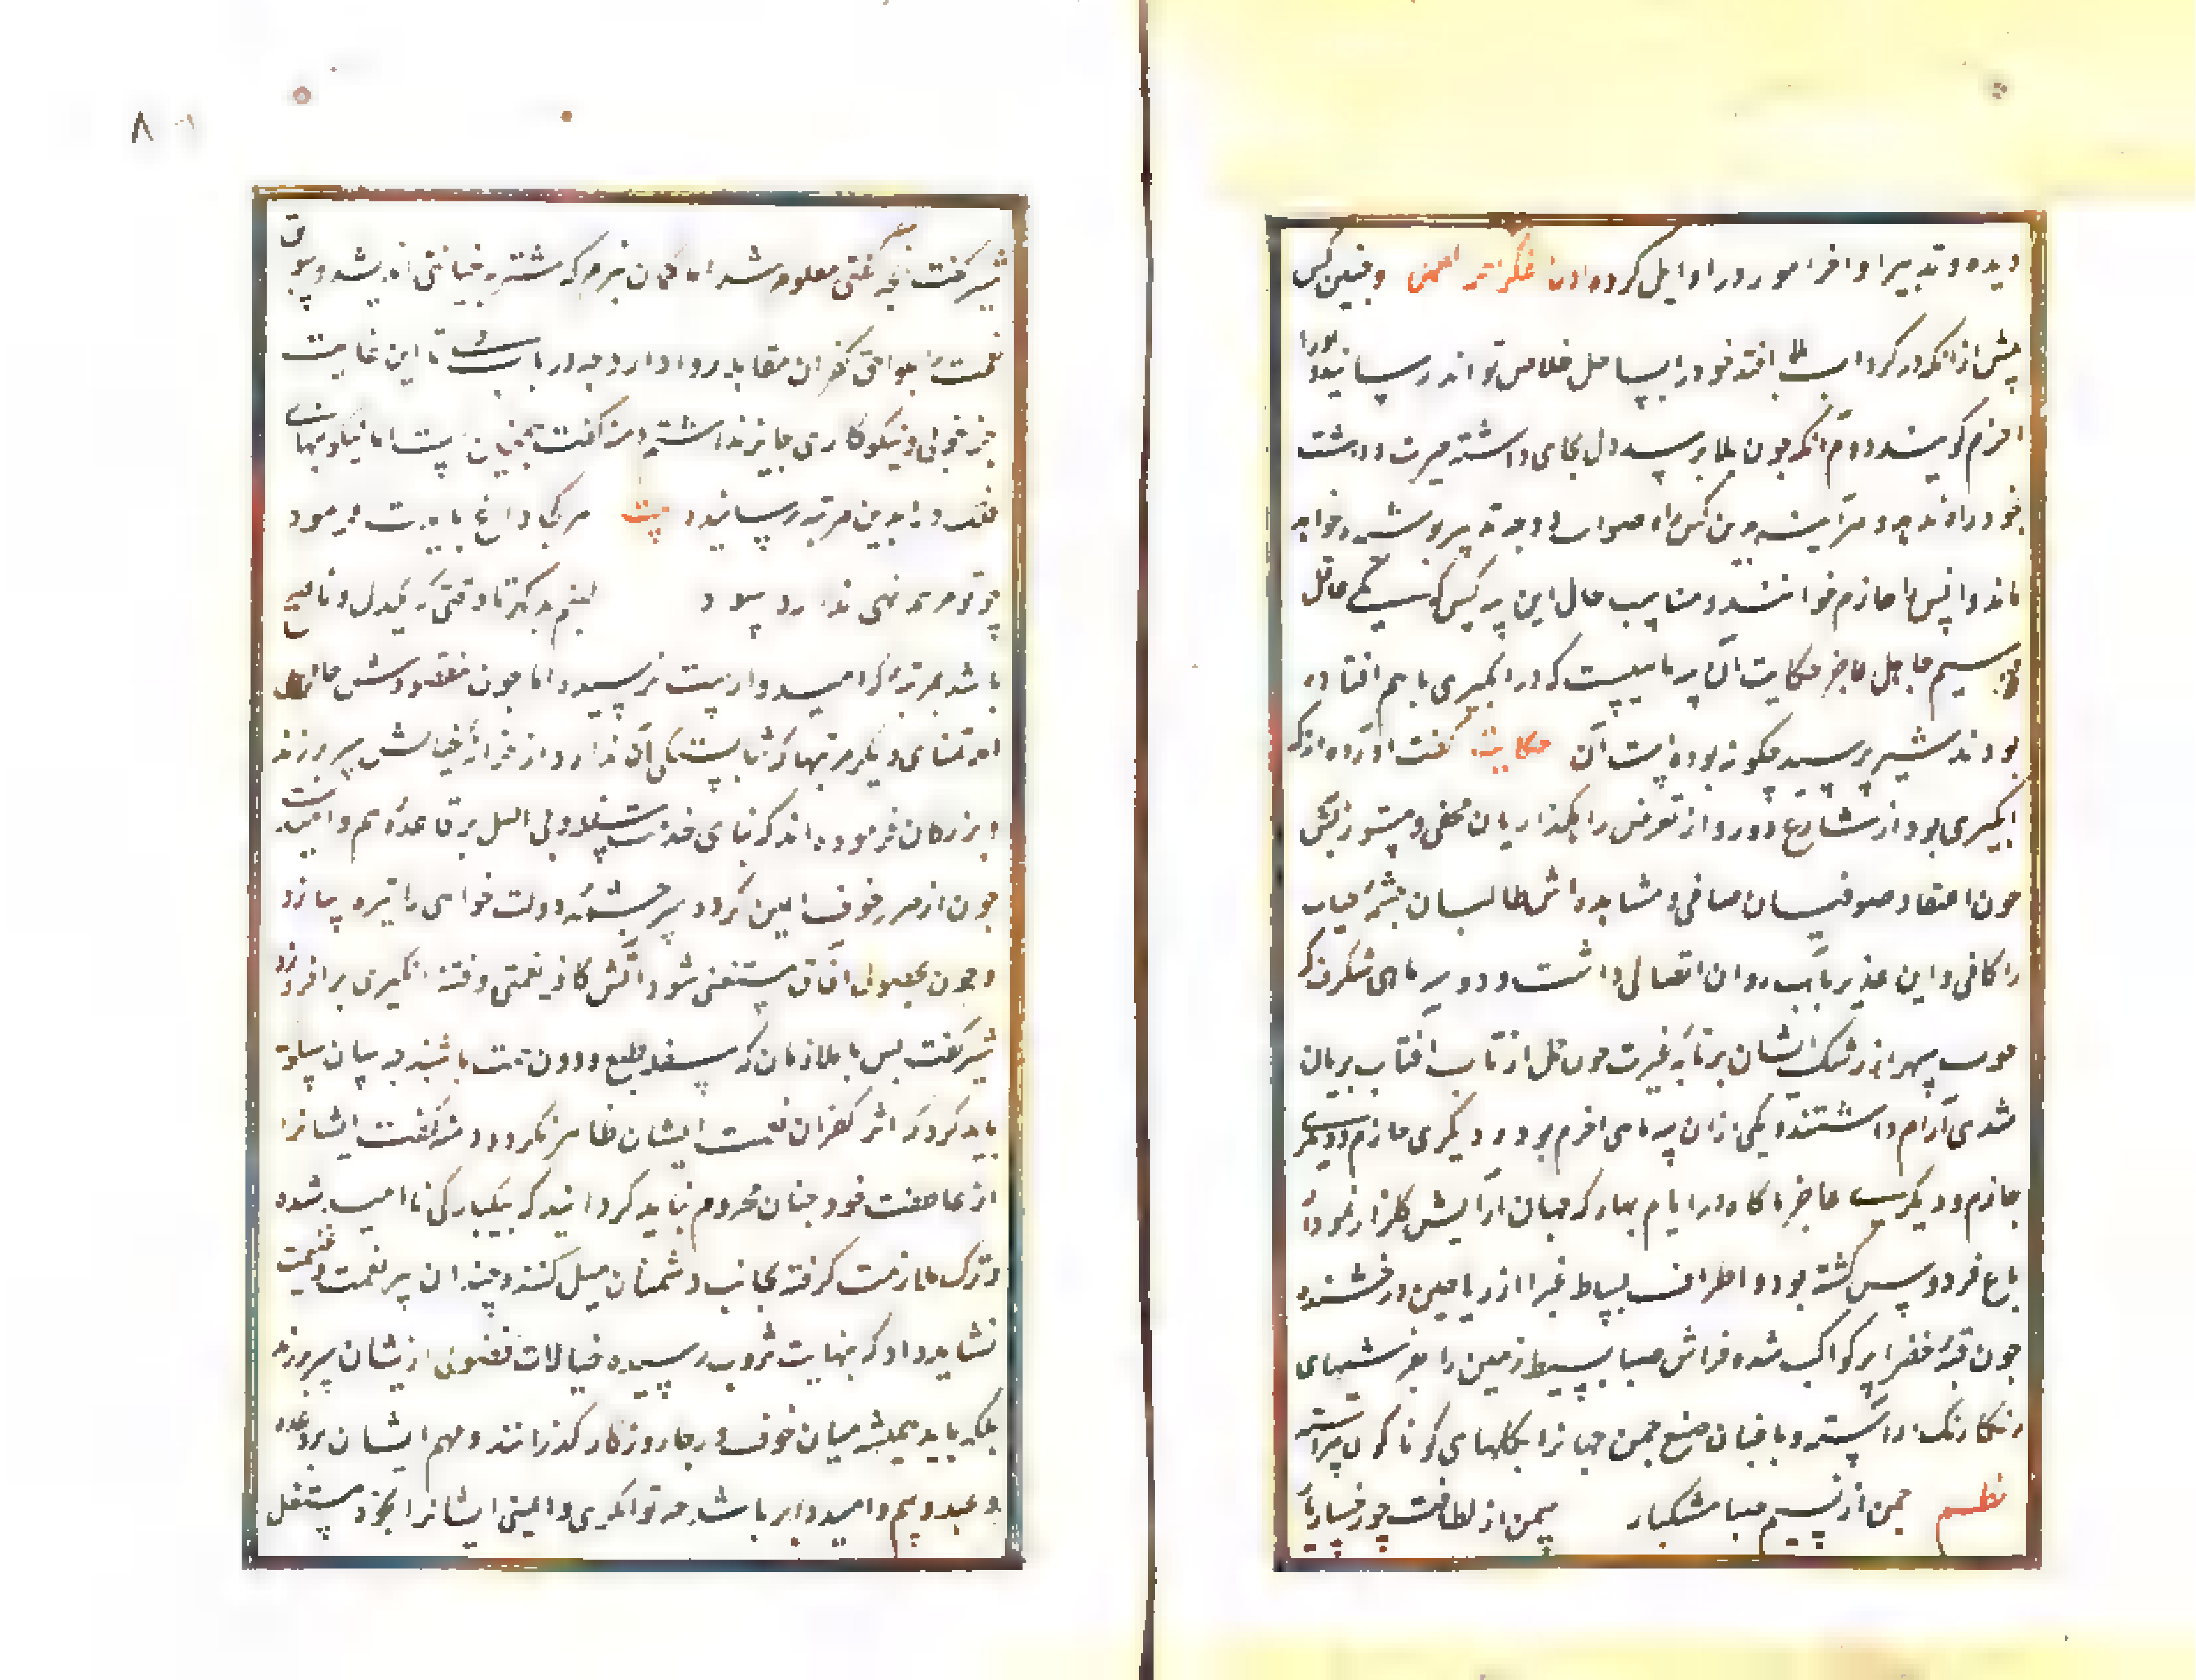 دیده و تدبیر اواخر امور در اوایل کرده اول فکر آخر العمل و چنین کس
پیش از انکه در کرداب بلا افتد خود را بساحل خلاص تواند رسانید و او را
احزم کویند دوم انکه چون بلا برسد دل بجای داشته حیرت و دهشت
بخود راه ندهد و هر آینه برین کس راه صواب و وجه تدبیر پوشیده
نماند و این کس را حازم خوانند و مناسب حال این سه کس که یکی عاقل
جاهل عاجز حکایت آن سه ماهیست که در ابکیری باهم افتاده
بودند شیر پرسید چکونه بوده است آن حکایت کفت آورده اند که
ابکیری بود از شارع دور و از تعرض راهکذاریان مخفی و مستور آبش
چون اعتقاد صوفیان صافی و مشاهده اش طالبان چشمه حیات
را کافی و این غدیر باب روان اتصالی داشت و دو سه ماهی شکرف که
حوت سپهر از رشک ایشان بر تابه غیرت چون حمل از تاب افتاب بریان
شدی آرام داشتند یکی ازان سه ماهی احزم بود و دیکری حازم و دیکری
عاجز ناکاه در ایام بهار که جهان از آرایش کلزار نمودار
باغ فردوس کشته بود و اطراف بساط غبرا از ریاحین درخشنده
چون قبه خضرا پر کواکب شده فراش صبا بسیط زمین را بفرشهای
رنکارنک اراسته و باغبان صنع چمن جهانرا بکلهای کوناکون پیراسته
نظم چمن از نسیم صبا مشکبار سمن از لطافت چو رخسار یار
شیر کفت آنچه کفتی معلوم شد اما کمان نبرم که شتربه خیانتی اندیشد و سوابق
نعمت ما بلواحق کفران مقابله روا دارد چه در باب او تا این غایت
جز خوبی و نیکوکاری جایز نداشته ام دمنه کفت همچنین است اما نیکوییهای
ملک او را بدین مرتبه رسانید بیت هر کجا داغ بایدت فرمود
چو تو مرهم نهی ندارد سود لئیم بدکهر تا وقتی یکدل و ناصح
باشد بمرتبه که امیدوارست نرسیده اما چون مقصودش حاصل شد
تمنای دیکر مرتبها که شایستکی آن ندارد از خزانه خیالش سر برزند
و بزرکان فرموده اند که بنای خدمت سفله و بی اصل بر قاعده بیم و امید است
چون از ضرر خوف ایمن کردد سرچشمه دولت خواهی را تیره سازد
و چون بحصول مستغنی شود آتش کافر نعمتی و فتنه انکیزی برافروزد
شیر کفت پس با ملازمان که سفله طبع و دون همت باشند چه سان سلوک
باید کرد که اثر کفران نعمت ایشان ظاهر نکردد دمنه کفت ایشانرا
از عاطفت خود چنان محروم نباید کردانید که بیکبارکی ناامید شده
و ترک ملازمت کرفته بجانب دشمنان میل کنند و چندان نعمت و غنیمت
نشاید داد که بنهایت ثروت رسیده خیالات فضولی از یشان سر برزند
بلکه باید همیشه میان خوف و رجا روزکار کذرانند و مهم ایشان بر وعده
و وعید و بیم و امید دایر باشد چه توانکری و ایمنی ایشانرا بخود مستقل
۸